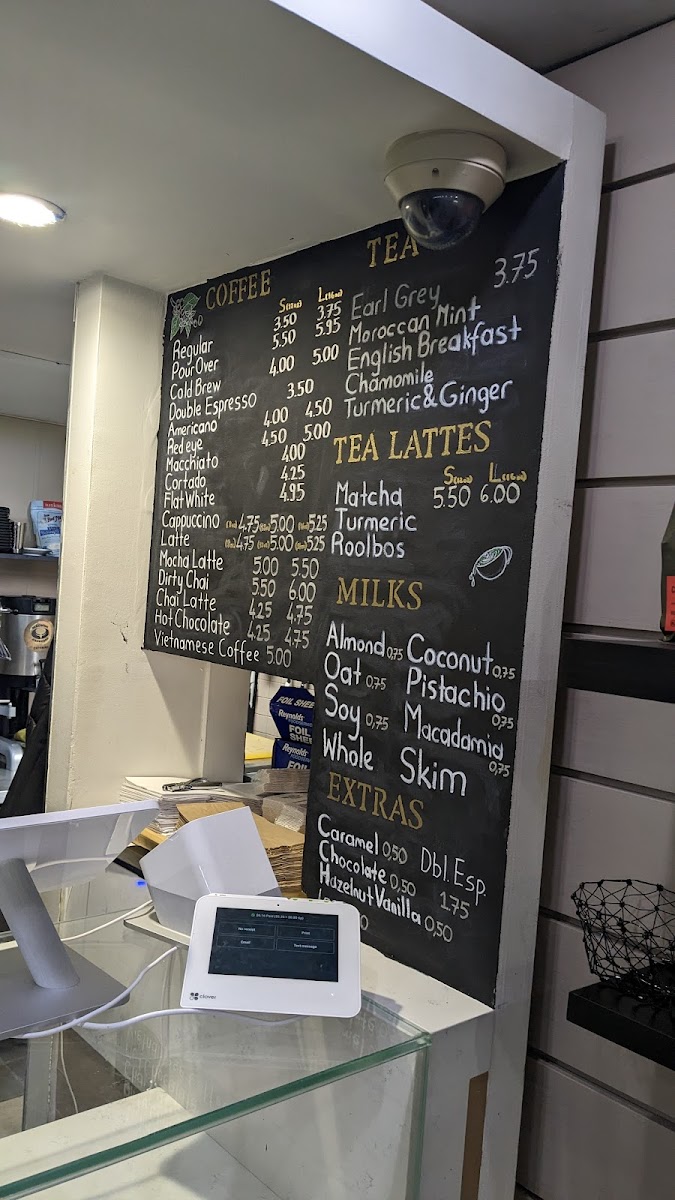 COFFEE
S(12oz) L(16oz)
Regular 3.50 3.75
Pour Over 5.50 5.95
Cold Brew 4.00 5.00
Double Espresso 3.50
Americano 4.00 4.50
Red eye 4.50 5.00
Macchiato 4.00
Cortado 4.25
Flat White 4.95
Cappuccino 4.75 5.00 525
Latte 4.75 5.00 525
Mocha Latte 5.00 5.50
Dirty Chai 5.50 6.00
Chai Latte 4.25 4.75
Hot Chocolate 4.25 4.75
Vietnamese Coffee 5.00
TEA
3.75
Earl Grey
Moroccan Mint
English Breakfast
Chamomile
Turmeric & Ginger
TEA LATTES
S(12oz) L(16oz)
Matcha 5.50 6.00
Turmeric
Rooibos
MILKS
Almond 0,75 Coconut 0,75
Oat 0,75 Pistachio 0,75
Soy 0,75 Macadamia 0,75
Whole Skim
EXTRAS
Caramel 0,50 Dbl. Esp. 1.75
Chocolate 0,50
Hazelnut Vanilla 0,50
FOIL SHEE
Reynolds
FOIL
SHE
Reynolds
FOIL
No receipt
Print
Email
Text message
clover